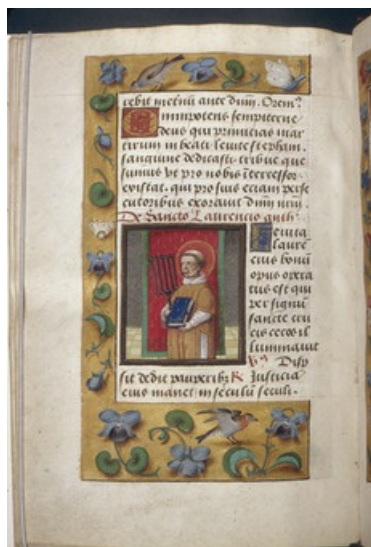 rebit metuu ante dnm. Orem?
Omnipotens sempiterne
deus qui primicias mar
tirum in beati leuite stephani
sanguine dedicasti tribue que
sumus ut pro nobis intercessor
existat. qui pro suis etiam perse
cutoribus exorauit dnm nrm.
De Sancto Laurencio anth.
Leuita
laure
cius bonu
opus opera
tus est qui
per signu
sancte cru
cis cecos il
luminauit
Disp
sit dedit pauperibz Justicia
eius manet in seculu seculi.